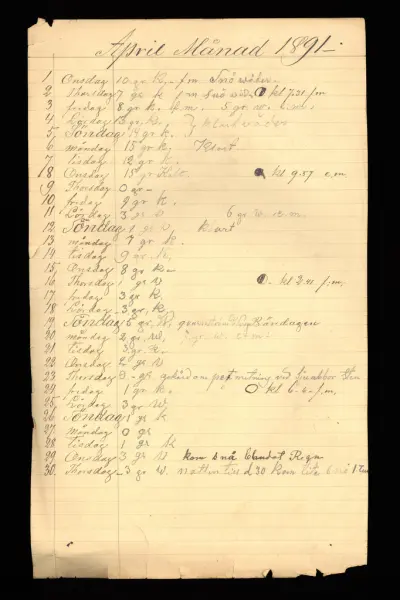 April Månad 1891
1 Onsdag 10 gr k. f.m Snö väder.
2 Thorsdag 7 gr k f m snö väd. kl 7.31 f.m
3 fredag 8 gr k. f.m. 8 gr. w. e.m.
4 Lördag 13 gr. k.
5. Söndag 14 gr k.
6 måndag 15 gr, k. Klart
7 tisdag 12 gr k.
18 Onsdag 15 gr Kallt. kl 9.57 e.m.
9. Thorsdag 0 gr
10. fredag 9 gr k.
11. Lördag 3 gr 6 gr w. e.m.
12. Söndag 1 gr klart
13 måndag 7 gr k.
14 tisdag 9 gr k,
15. Onsdag 8 gr k
16 Thorsdag 1 gr w kl 3.41 f.m.
17 fredag 3 gr k,
18 Lördag 3 gr, k.
19 Söndag 5 gr. W,
20 måndag 2 gr, w, gr w. e.m.
21 tisdag 5 gr.
22 Onsdag 2 gr w
23 Thorsdag gr
24 fredag 1 gr k. kl 6-4 f.m,
25 Lördag 3 gr w.
26 Söndag 1 gr k
27 måndag 0 gr
28 Tisdag 1 gr k
29 Onsdag 3 gr w kom snö blandat Regn
30. Thorsdag 3 gr w. natten till d 30 kom lite snö